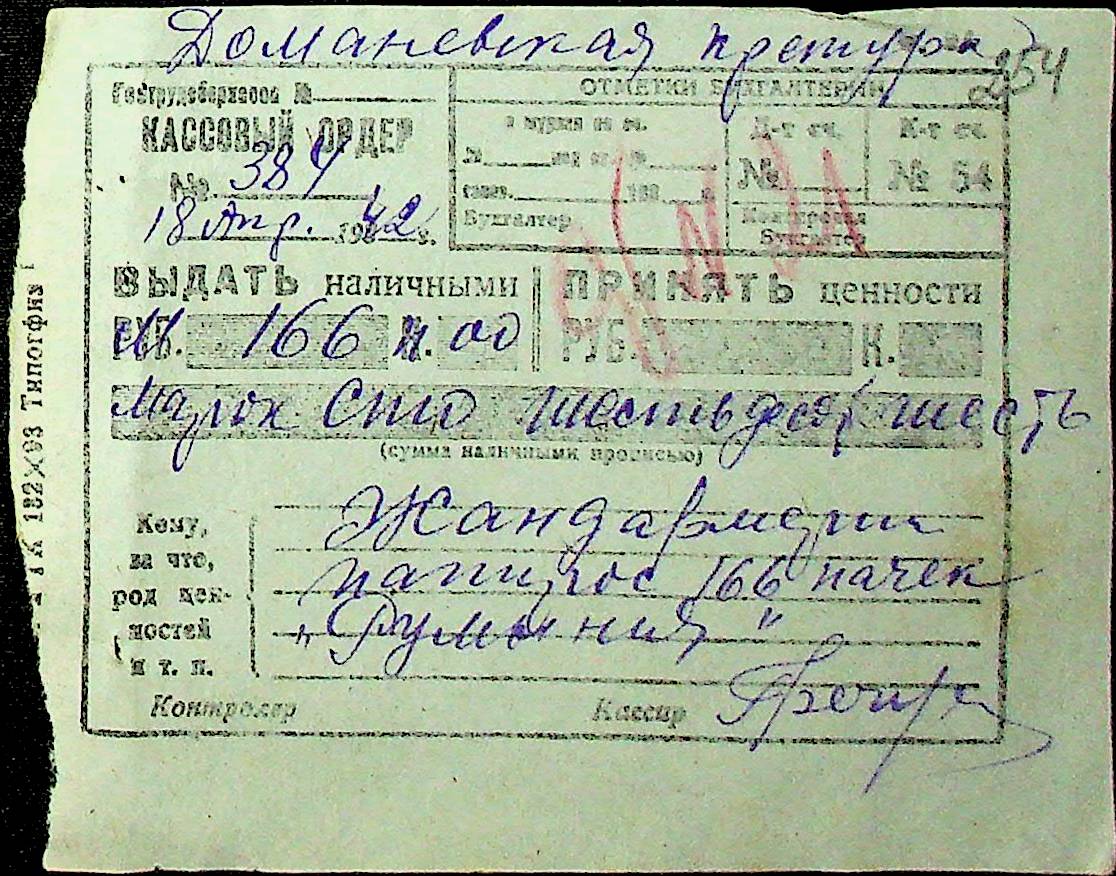 Доманевская претура
254
Гострудсберкасса №
КАССОВЫЙ ОРДЕР
№ 384
18 Апр. 1942 г.
ОТМЕТКИ БУХГАЛТЕРИИ
в журнал по сч.
№
Бухгалтер
Д-т сч.
№
К-т сч.
№ 54
Контировал
Бухгалтер
ВЫДАТЬ наличными
РУБ. 166 К. 00
ПРИНЯТЬ ценности
РУБ. К.
Марок сто шестьдесят шесть
(сумма наличными прописью)
Кому,
за что,
род цен-
ностей
и т. п.
Жандармерии
папирос 166 пачек
„Румыния"
Контролер
Кассир
182×93 Типография